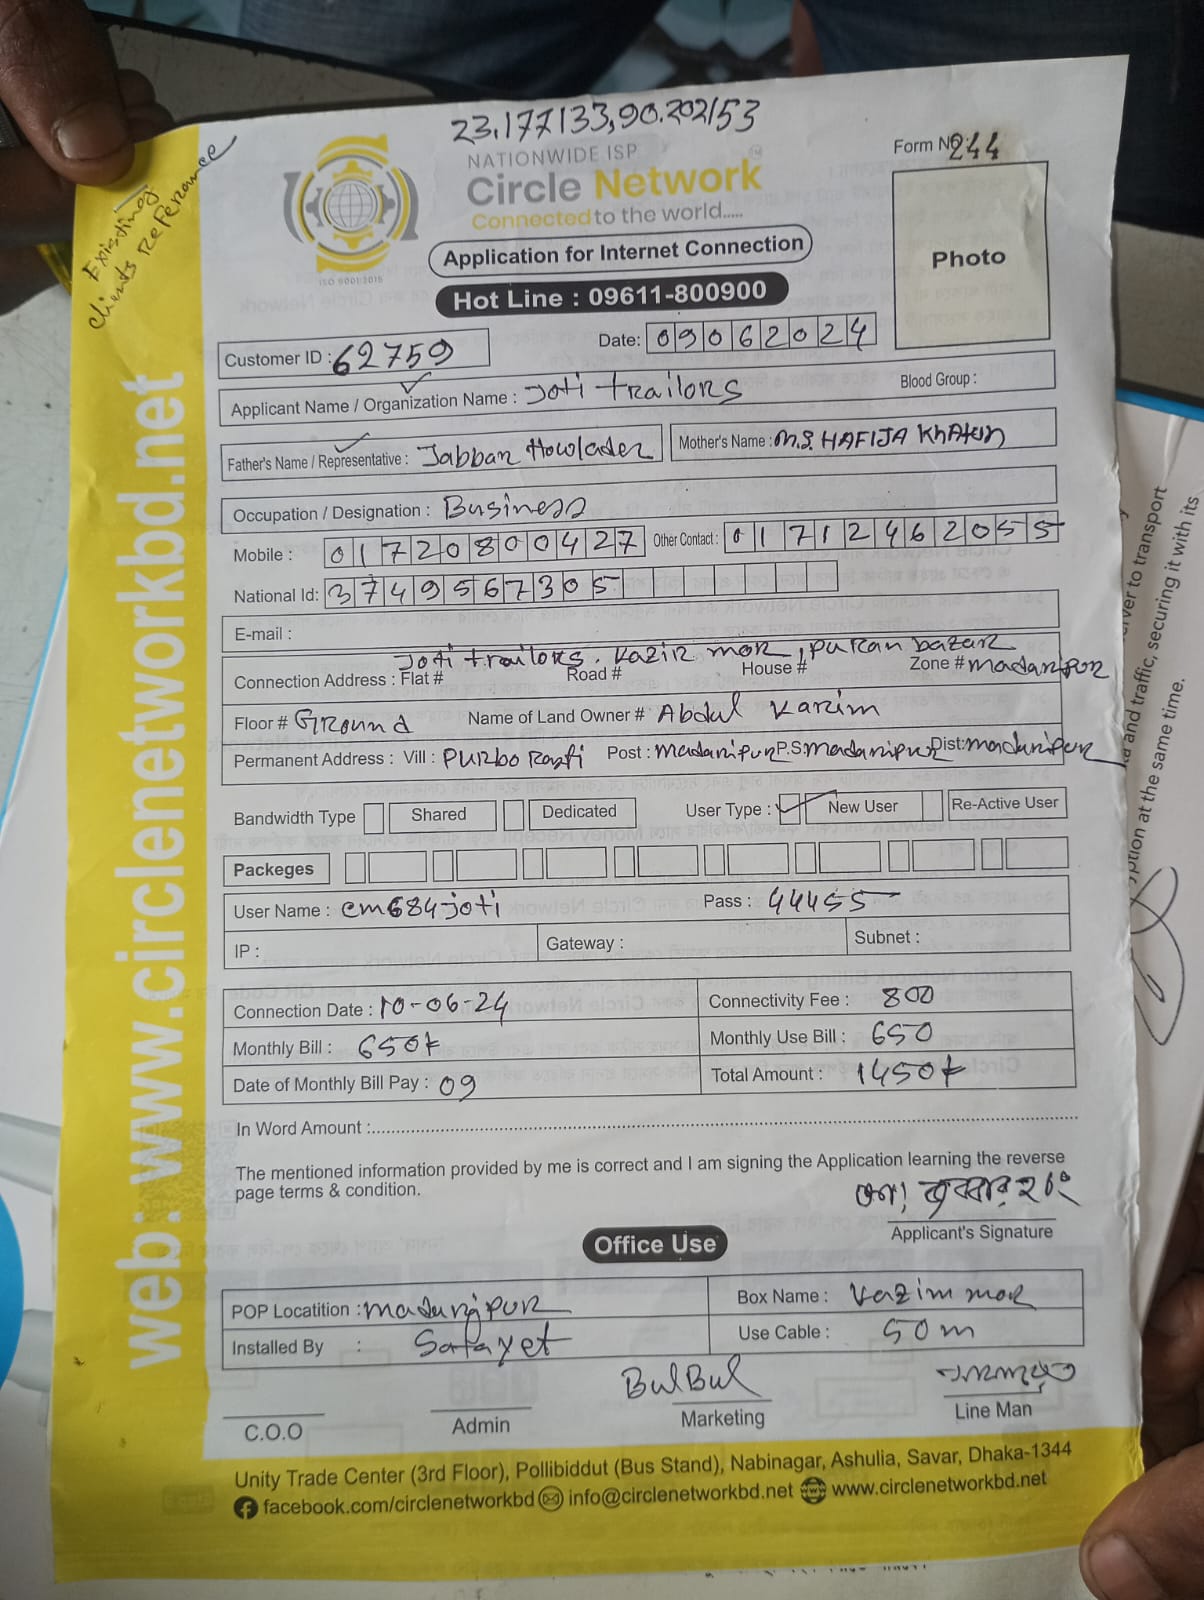 23.177133,90.202153
Existing
clients Referance
NATIONWIDE ISP
Circle Network
Connected to the world.....
ISO 9001:2015
Form No 244
Application for Internet Connection
Hot Line : 09611-800900
Photo
Customer ID : 62759
Date: 09062024
Applicant Name / Organization Name : Joti trailors
Blood Group :
Father's Name / Representative : Jabbar Howlader
Mother's Name : M.S. HAFIJA Khatun
Occupation / Designation : Business
Mobile : 01720800427 Other Contact : 01712462055
National Id: 3749567305
E-mail :
Joti trailors. Kazir mor, puran bazar
Connection Address : Flat # Road # House # Zone # madaripur
Floor # Ground Name of Land Owner # Abdul Karim
Permanent Address : Vill : Purbo Rasti Post : madaripur P.S: madaripur Dist: madaripur
Bandwidth Type Shared Dedicated User Type : New User Re-Active User
Packeges
User Name : cm684joti Pass : 44455
IP : Gateway : Subnet :
Connection Date : 10-06-24 Connectivity Fee : 800
Monthly Bill : 650t Monthly Use Bill : 650
Date of Monthly Bill Pay : 09 Total Amount : 1450t
In Word Amount :
The mentioned information provided by me is correct and I am signing the Application learning the reverse
page terms & condition.
Applicant's Signature
Office Use
POP Locatition : madaripur Box Name : Kazim mor
Installed By : Safayet Use Cable : 50m
BulBul
C.O.O Admin Marketing Line Man
Unity Trade Center (3rd Floor), Pollibiddut (Bus Stand), Nabinagar, Ashulia, Savar, Dhaka-1344
facebook.com/circlenetworkbd info@circlenetworkbd.net www.circlenetworkbd.net
web: www.circlenetworkbd.net
ver to transport
and traffic, securing it with its
ption at the same time.